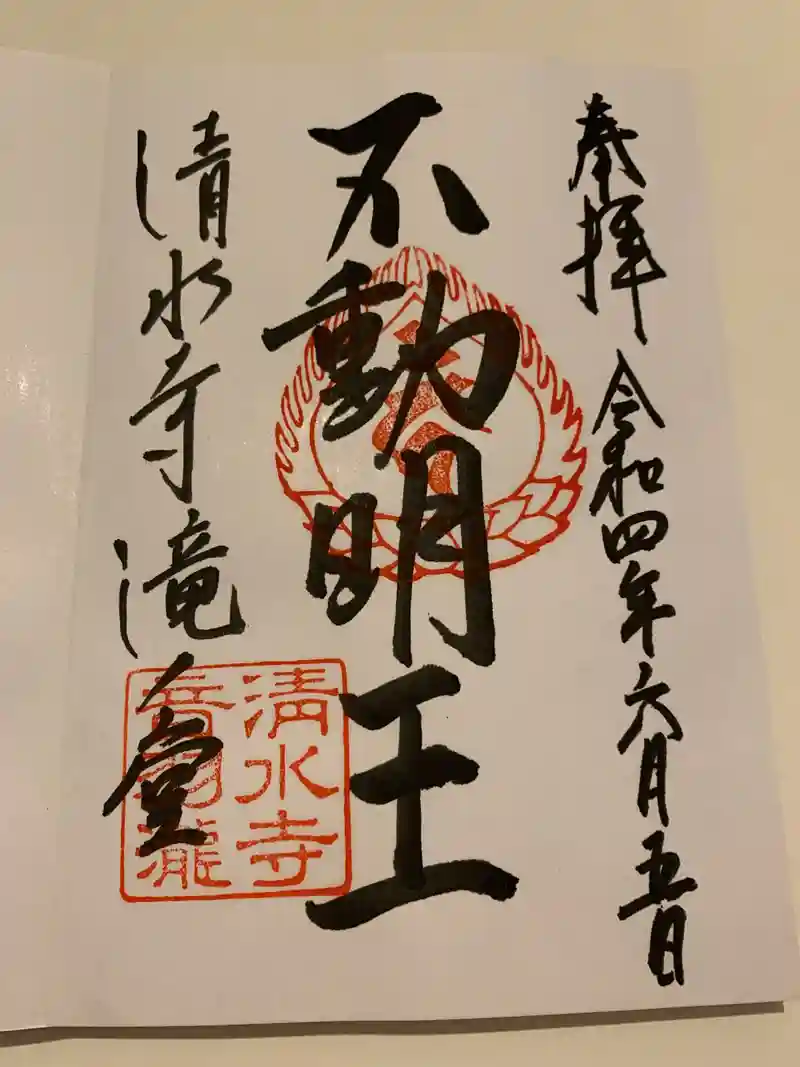 奉拝 令和四年六月五日
不動明王
清水寺滝ノ堂
清水寺
音羽瀧